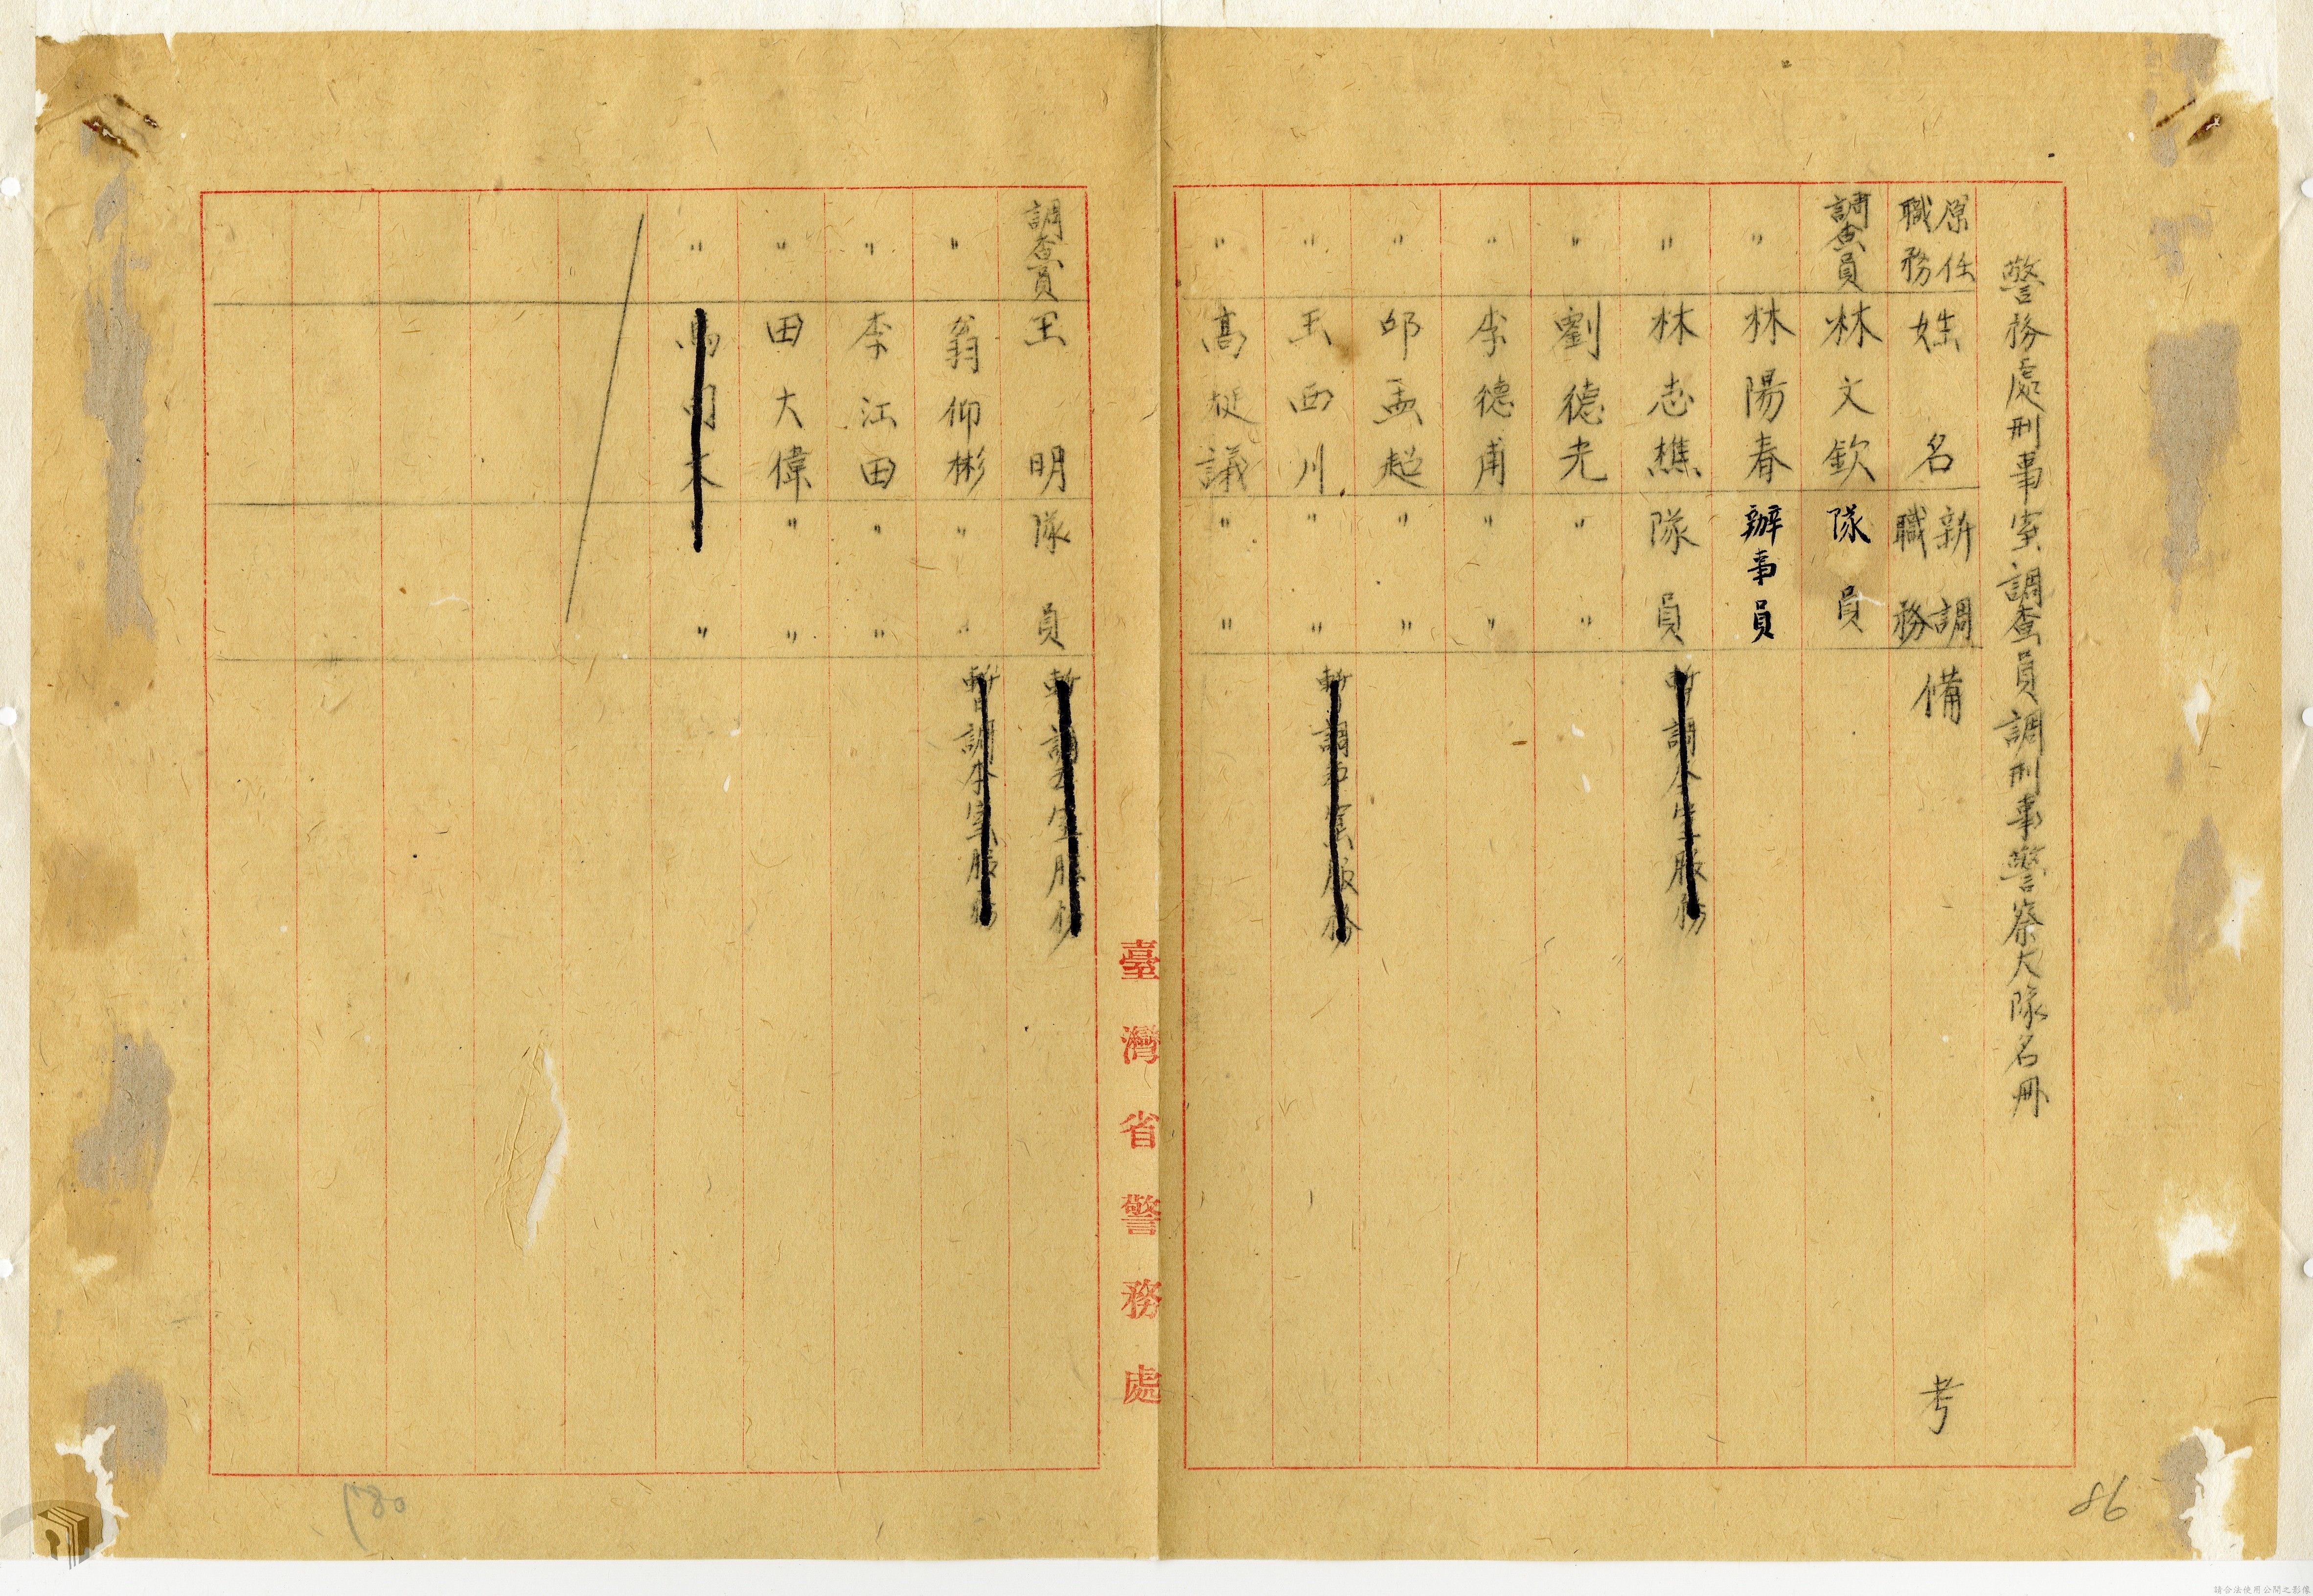 警務處刑事室調查員調刑事警察大隊名冊
原任職務 姓名 新調職務 備考
調查員 林文欽 隊員
〃 林陽春 辦事員
〃 林志樵 隊員 暫調本室服務
〃 劉德光 〃 〃
〃 李德甫 〃 〃
〃 邱孟超 〃 〃
〃 王西川 〃 〃 暫調本室服務
〃 高挺議 〃 〃
臺灣省警務處
調查員 王明 隊員 暫調本室服務
〃 翁仰彬 〃 〃 暫調本室服務
〃 李江田 〃 〃
〃 田大偉 〃 〃
〃 〃 〃
86
180
請合法使用公開之影像